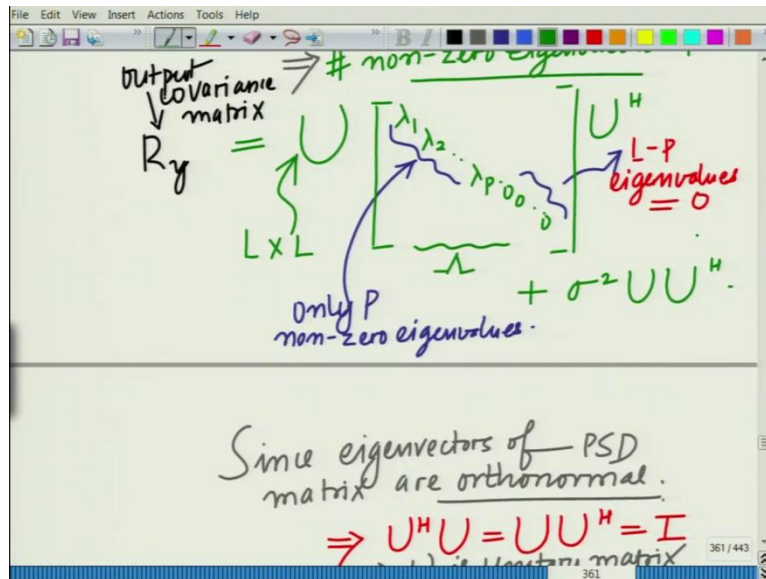 File Edit View Insert Actions Tools Help
B I
⇒ # non-zero eigenvalues
output
covariance
matrix
R_y = U [ λ1 λ2 .. λP 0 0 .. 0 ] U^H
L-P
eigenvalues
= 0
L x L
Λ
+ σ² U U^H.
only P
non-zero eigenvalues.
Since eigenvectors of PSD
matrix are orthonormal.
⇒ U^H U = U U^H = I
U is unitary matrix
361/443
361